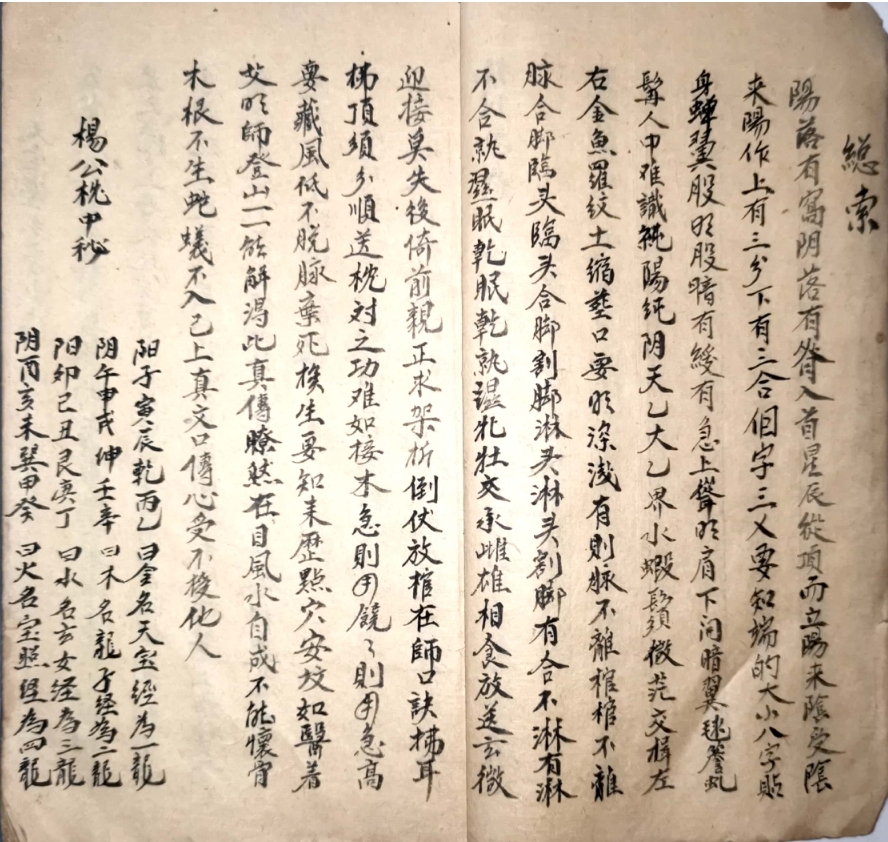 総索
陽落有窩阴落有脊入首星辰從項而立陽来陰受陰
来陽作上有三分下有三合但字三乂要知端的大小八字貼
身蟬翼股明股暗有緩有急上聳明肩下问暗翼毬簷虬
髯人中难識純陽純阴天乙大乙界水蝦鬚微茫交揖左
右金魚羅紋土缩塟口要明深浅有則脉不離棺棺不離
脉合脚臨头臨头合脚割脚淋头淋头割脚有合不淋有淋
不合執濕眠乾眠乾執湿牝牡交承雌雄相食放送玄微
迎接莫失後倚前親正求架折倒仗放棺在師口訣拂耳
拂頂須分順送枕対之功难如接木急則用饒々則用急高
要藏風低不脱脉棄死挨生要知来歴點穴安坟如醫着
艾明師登山一一能解得此真傳瞭然在目風水自成不能懷骨
木根不生蛇蟻不入已上真文口傳心受不授化人
楊公枕中秘
阳子寅辰乾丙乙曰金名天宝經為一龍
阴午申戌坤壬辛曰木名龍子經為二龍
阳卯己丑艮庚丁曰水名玄女經為三龍
阴酉亥未巽甲癸曰火名宝照經為四龍